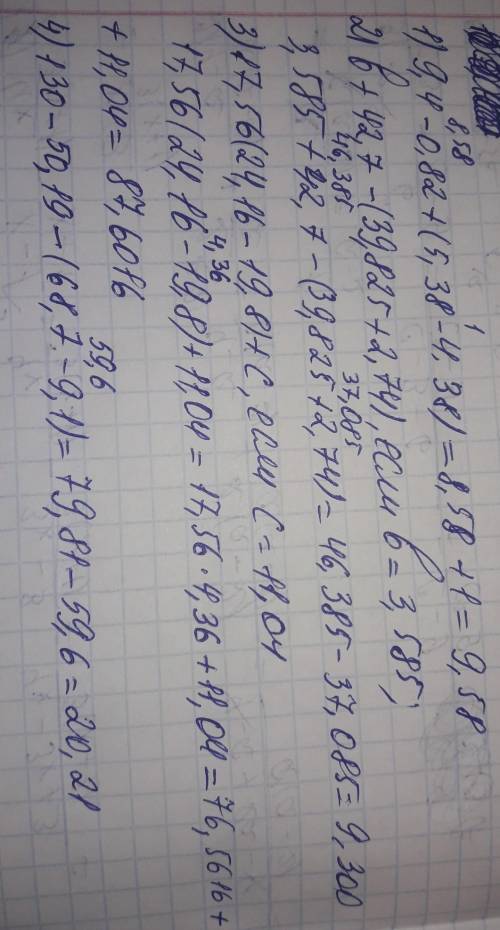 8,58 1
1) 9,4-0,82+(5,38-4,38)=8,58+1=9,58
2) в+42,7-(39,825+2,74), если в=3,585;
46,385 37,085
3,585+42,7-(39,825+2,74)=46,385-37,085=9,300
3) 17,56(24,16-19,8)+с, если с=11,04
4,36
17,56(24,16-19,8)+11,04=17,56·4,36+11,04=76,5616+
+11,04=87,6016
59,6
4) 130-50,19-(68,7-9,1)=79,81-59,6=20,21